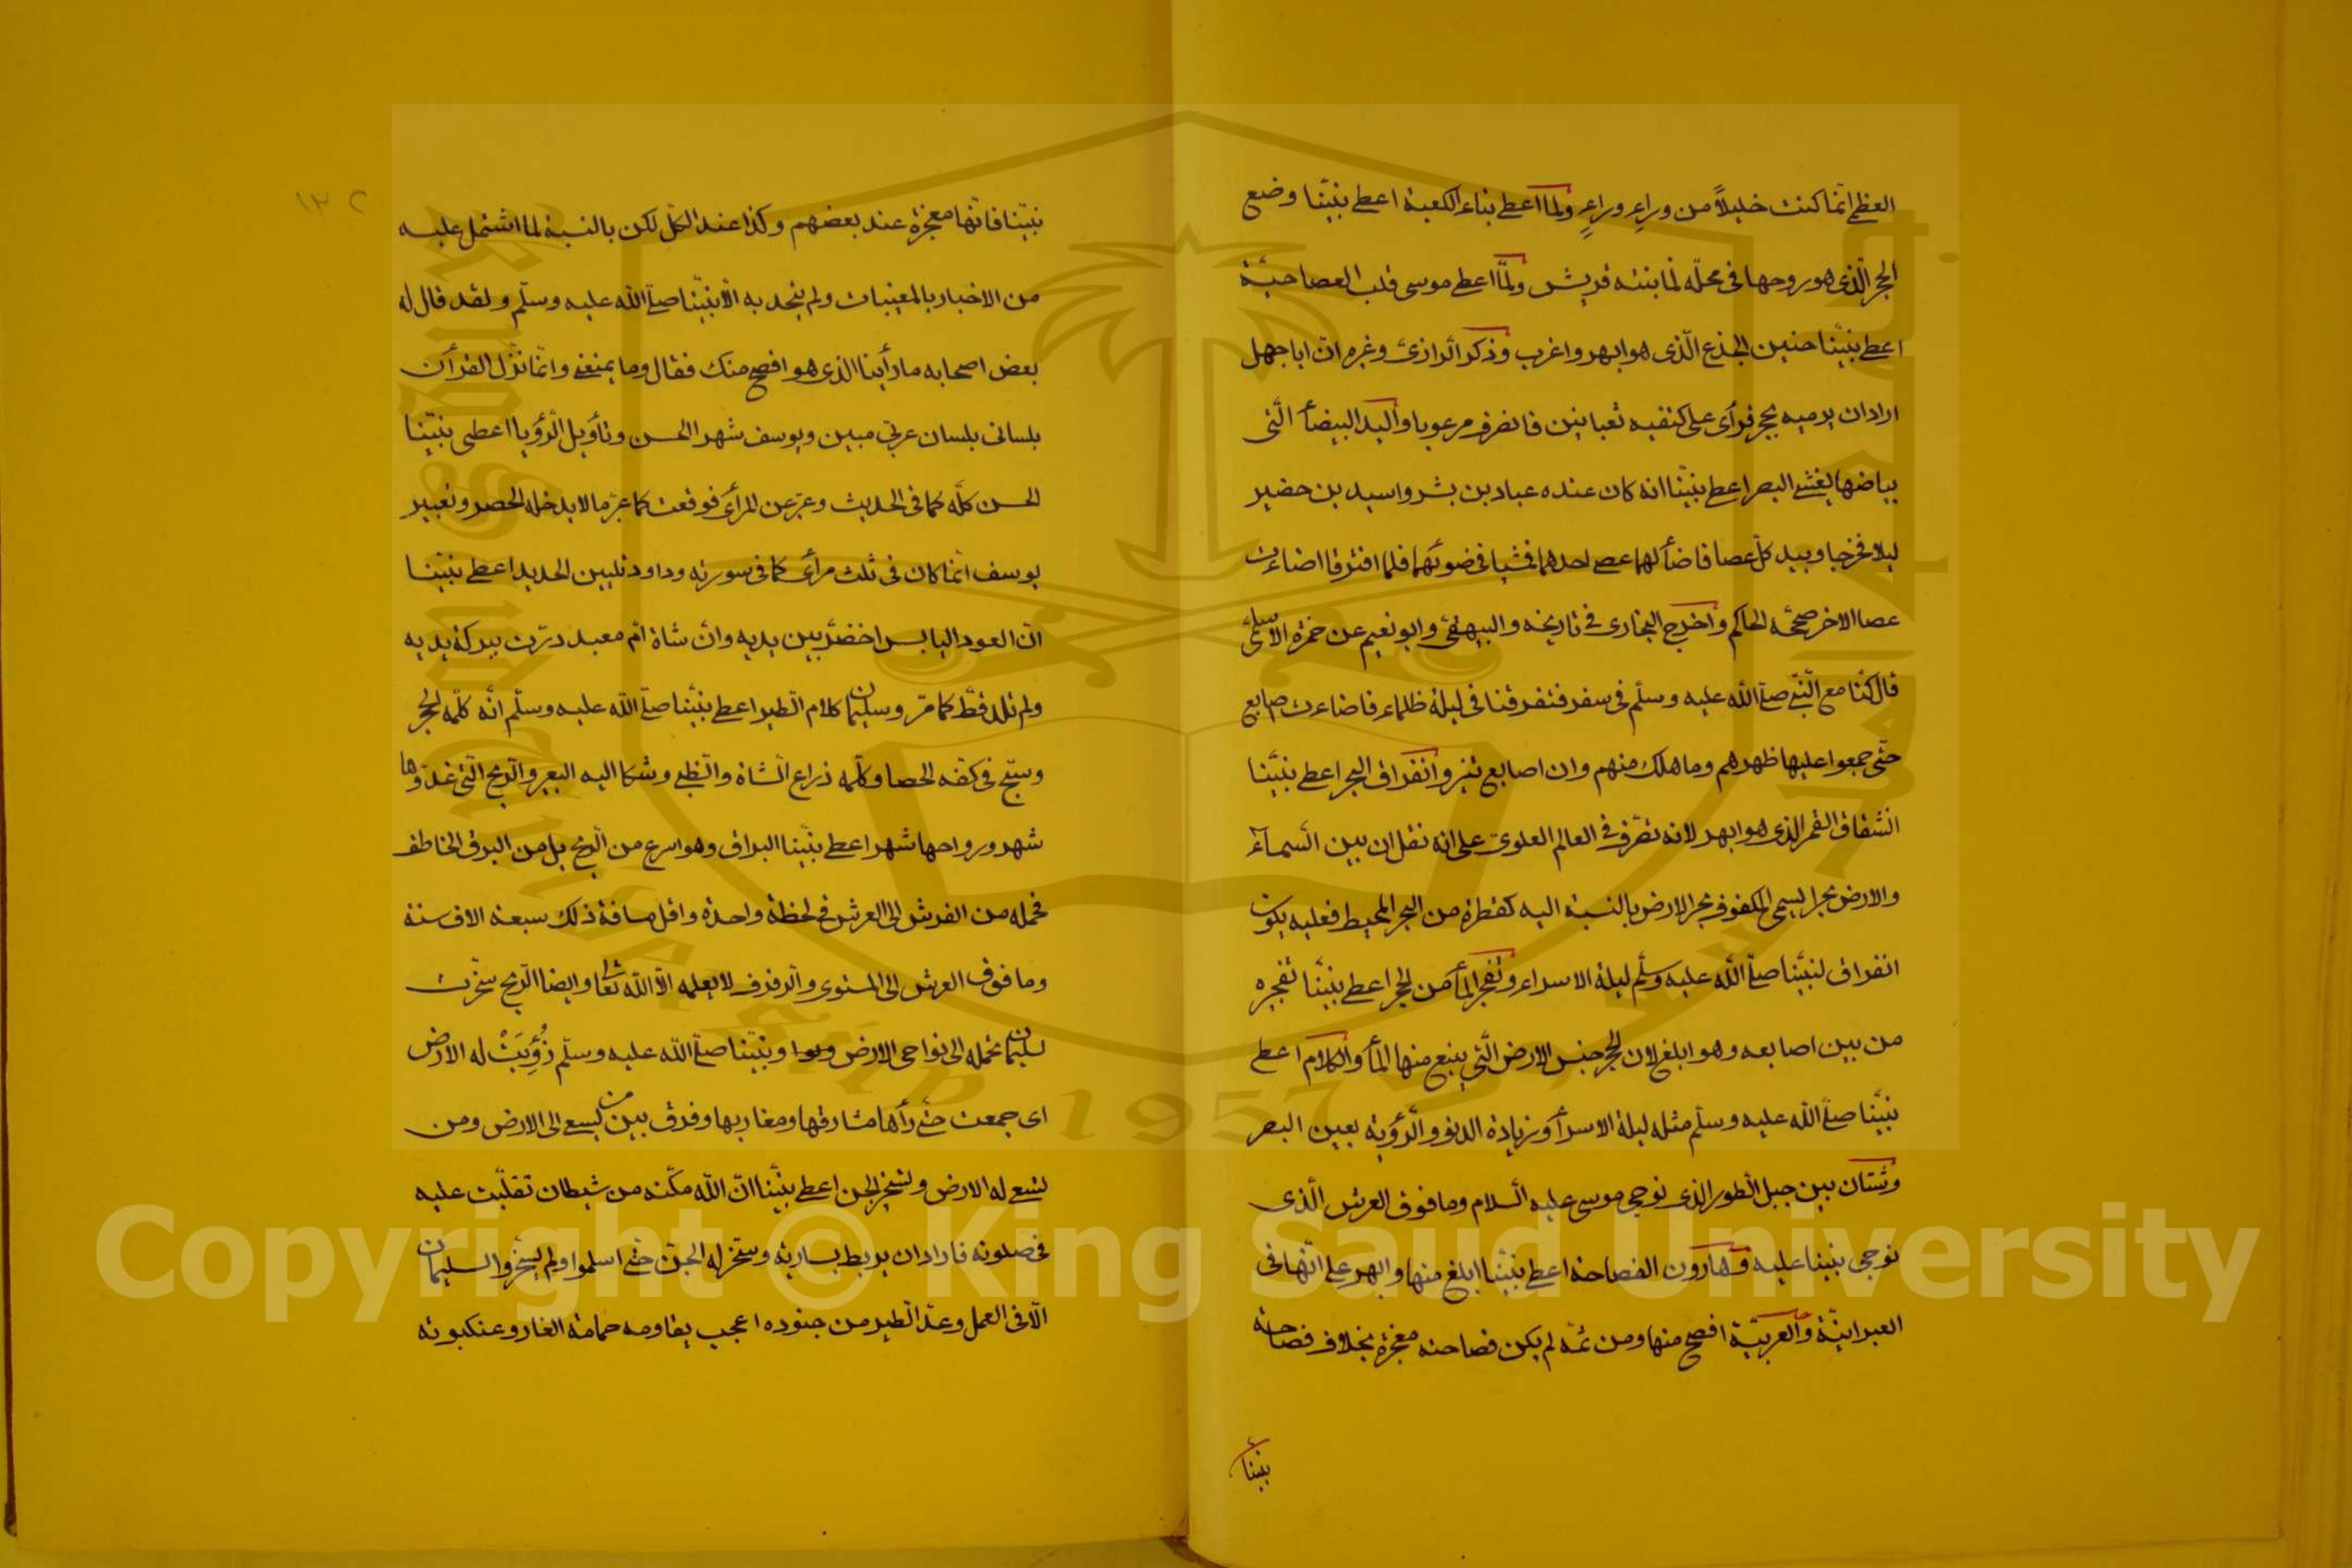 العظمى انما كنت خليلاً من وراءِ وراءٍ ولما اعطى بناء الكعبة اعطى نبيّنا وضع
الحجر الّذى هو روحها فى محلّه لما بنته قريش ولمّا اعطى موسى قلب العصا حيّة
اعطى نبيّنا حنين الجذع الّذى هو ابهر واغرب وذكر الرازىّ وغيره انّ ابا جهل
اراد ان يرميه بحجر فرأى على كتفيه ثعبانين فانصرف مرعوبا واليد البيضأ الّتى
بياضها يغشى البصر اعطى نبيّنا انه كان عنده عباد بن بشر واسيد بن حضير
ليلا فخرجا وبيد كلّ عصا فاضأ لهما عصى احدهما فمشيا فى ضوئهما فلما افترقا اضاءت
عصا الاخر صحّحه الحاكم واخرج البخارى فى تاريخه والبيهقىّ وابو نعيم عن حمزة الاسلمىّ
قال كنّا مع النّبىّ صلّى اللّه عليه وسلّم فى سفر فتفرقنا فى ليلة ظلماء فاضاءت اصابع
حتّى جمعوا عليها ظهرهم وما هلك منهم وان اصابع تنير وانفراق البحر اعطى نبيّنا
انشقاق القمر الذى هو ابهر لانه تصرّف فى العالم العلوى على انه نقل ان بين السّمآء
والارض بحرا يسمى المكفوف بحر الارض بالنسبة اليه كقطرة من البحر المحيط فعليه يكون
انفراق لنبيّنا صلّى اللّه عليه وسلّم ليلة الاسراء وتفجر المأ من الحجر اعطى نبيّنا تفجره
من بين اصابعه وهو ابلغ لان الحجر جنس الارض الّتى ينبع منها المأ والكلام اعطى
نبيّنا صلّى اللّه عليه وسلّم مثله ليلة الاسرأ وزيادة الدنو والرّؤية بعين البصر
وشتان بين جبل الطور الذى نوجى موسى عليه السلام وما فوق العرش الّذى
نوجى نبينا عليه وهارون الفصاحة اعطى نبيّنا ابلغ منها وابهر على انّها فى
العبرانيّة والعربيّة افصح منها ومن ثمّه لم يكن فصاحته معجزة بخلاف فصاحة
نبيّنا
١٣٢
نبيّنا فانّها معجزة عند بعضهم وكذا عند الكلّ لكن بالنسبة لما اشتمل عليه
من الاخبار بالمغيبات ولم يتحد به الّا نبيّنا صلّى اللّه عليه وسلّم ولقد قال له
بعض اصحابه ما رأينا الذى هو افصح منك فقال وما يمنعنى وانّما نزّل القرأن
بلسانى بلسان عربىّ مبين ويوسف شهر الحسن وتأويل الرّؤيا اعطى نبيّنا
الحسن كلّه كما فى الحديث وعبّر عن المرأى فوقعت كما عبّر ما لا يدخله الحصر وتعبير
يوسف انّما كان فى ثلث مرأى كما فى سورته وداود تليين الحديد اعطى نبيّنا
انّ العود اليابس اخضرّ بين يديه وانّ شاة امّ معبد درّت ببركة يديه
ولم تلد قطّ كما مرّ وسليمان كلام الطير اعطى نبيّنا صلّى اللّه عليه وسلّم انّه كلّمه الحجر
وسبّح فى كفّه الحصا وكلّمه ذراع الشّاة والظّبى وشكا اليه البعير والرّيح الّتى غدوّها
شهر ورواحها شهر اعطى نبيّنا البراق وهو اسرع من الرّيح بل من البرق الخاطف
فحمله من الفرش الى العرش فى لحظة واحدة واقل مسافة ذلك سبعة الاف سنة
وما فوق العرش الى المستوى والرّفرف لا يعلمه الّا اللّه تعالى وايضا الرّيح سخّرت
لسليمان تحمله الى نواحى الارض ونبيّنا صلّى اللّه عليه وسلّم زُوِيَتْ له الارض
اى جمعت حتّى رأها مشارقها ومغاربها وفرق بين من يسعى الى الارض ومن
تسعى له الارض وتسخير الجن اعطى نبيّنا انّ اللّه مكّنه من شيطان تفلّت عليه
فى صلوته فاراد ان يربط بسارية وسخّر له الجنّ حتّى اسلموا ولم يسخّروا لسليمان
الّا فى العمل وعدّ الطير من جنوده اعجب يقاومه حمامة الغار وعنكبوته
Copyright © King Saud University
King Saud University
1957